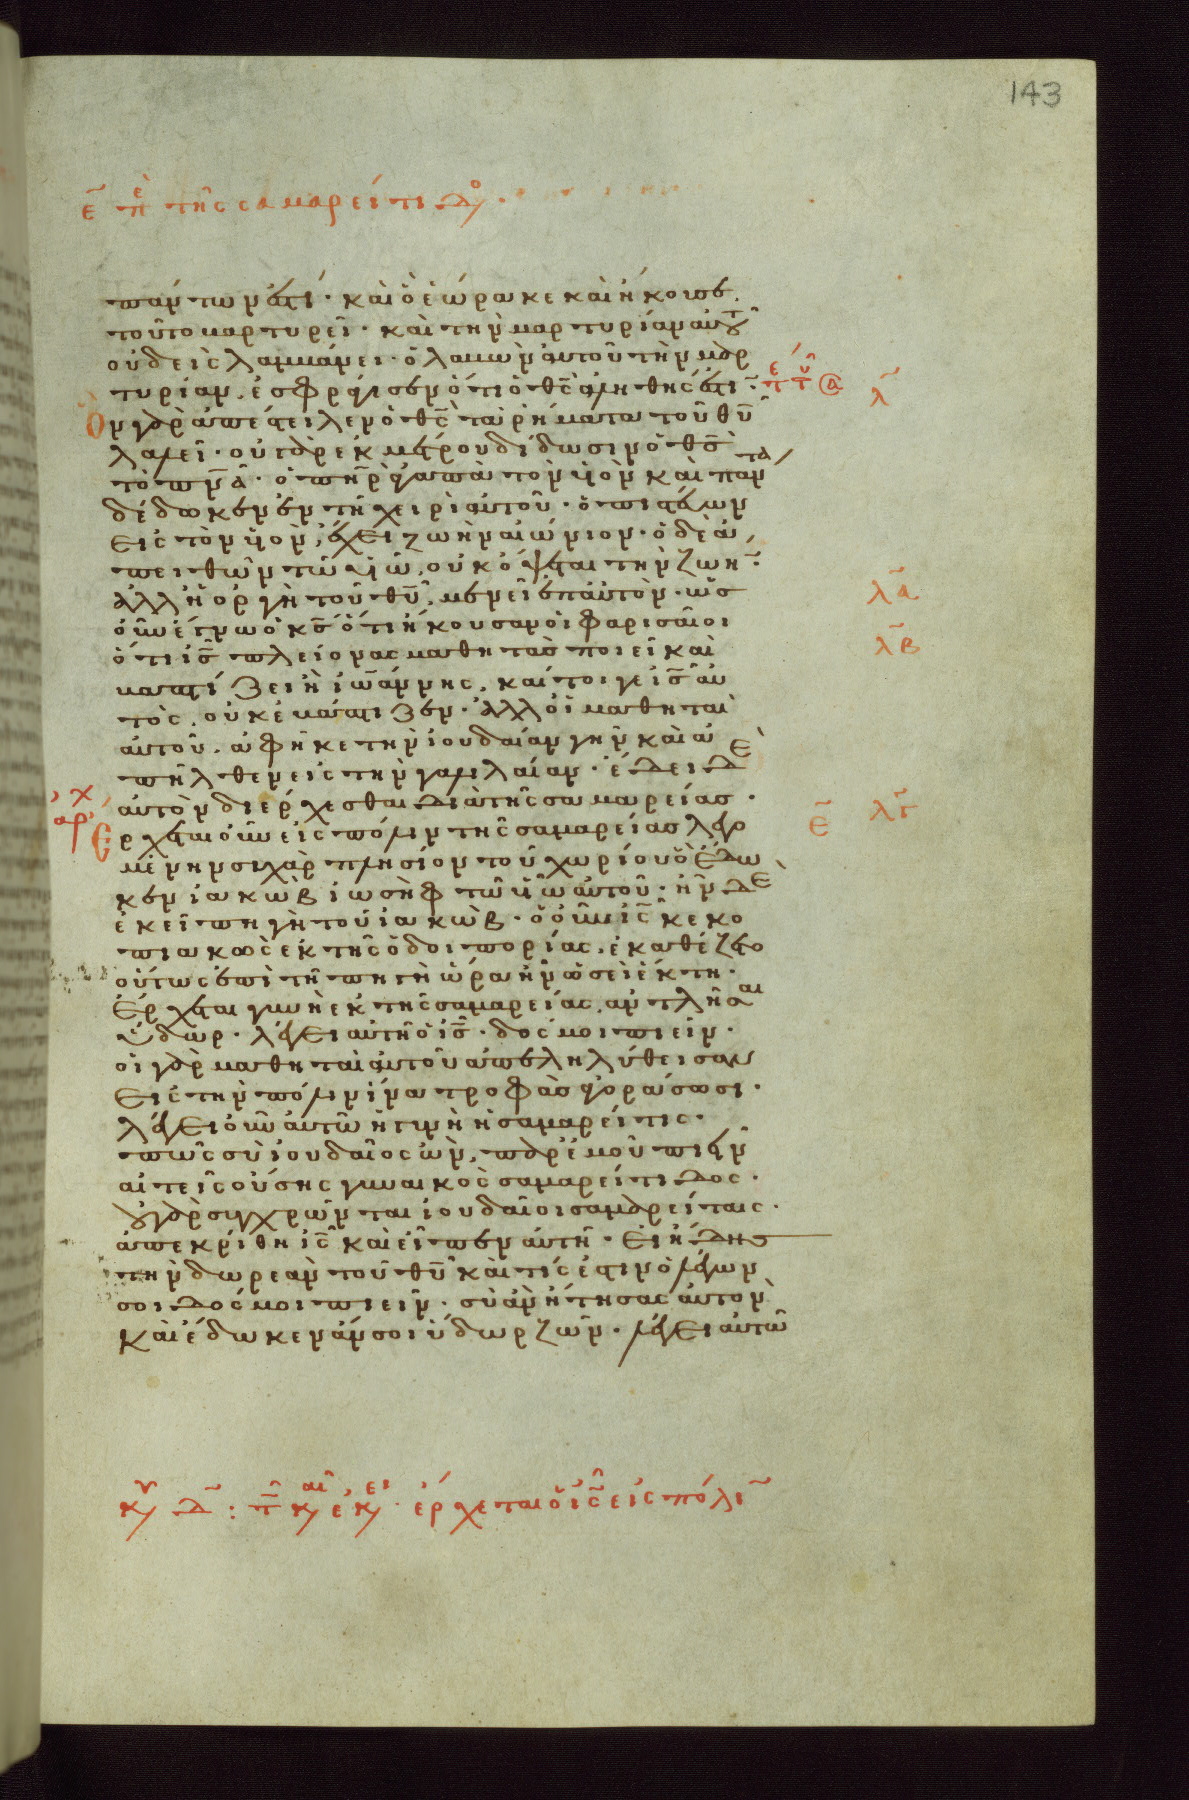 143
ε̄ πὲ τῆς σαμαρείτιδο
πάντων ἐστί· καὶ ὃ ἑώρακε καὶ ἤκουσε,
τοῦτο μαρτυρεῖ· καὶ τὴν μαρτυρίαν αὐτοῦ
οὐδεὶς λαμβάνει· ὁ λαβὼν αὐτοῦ τὴν μαρ
τυρίαν, ἐσφράγισεν ὅτι ὁ θς̄ ἀληθής ἐστι·
λ̄
ὃν γὰρ ἀπέστειλεν ὁ θς̄ τὰ ῥήματα τοῦ θῡ
λαλεῖ· οὐ γὰρ ἐκ μέτρου δίδωσιν ὁ θς̄
τὸ πν̄ᾱ· ὁ πη̄ρ ἀγαπᾶ τὸν υἱὸν καὶ πάντα
δέδωκεν ἐν τῆ χειρὶ αὐτοῦ· ὁ πιστεύων
εἰς τὸν υἱὸν, ἔχει ζωὴν αἰώνιον· ὁ δὲ ἀ
πειθῶν τῶ υἱῶ, οὐκ ὄψεται τὴν ζωή̄·
ἀλλ ἡ ὀργὴ τοῦ θῡ, μένει ἐπ αὐτὸν· ὡς
λ̄ᾱ
οὖν ἔγνω ὁ κς̄ ὅτι ἤκουσαν οἱ φαρισαῖοι
λ̄β
ὅτι ις̄ πλείονας μαθητὰς ποιεῖ καὶ
βαπτίζει ἢ ἰωάννης, καίτοιγε ις̄ αὐ
τὸς, οὐκ ἐβάπτιζεν· ἀλλ οἱ μαθηταὶ
αὐτοῦ, ἀφῆκε τὴν ἰουδαίαν γῆν καὶ ἀ
πῆλθεν εἰς τὴν γαλιλαίαν· ἔδει δὲ
αὐτὸν διέρχεσθαι διὰ τῆς σαμαρείας·
ἀρχ
ἔρχεται οὖν εἰς πόλιν τῆς σαμαρείας λεγο
ε̄ λ̄γ
μένην συχὰρ πλησίον τοῦ χωρίου ὃ ἔδω
κεν ἰακὼβ ἰωσὴφ τῶ υἱῶ αὐτοῦ· ἦν δὲ
ἐκεῖ πηγὴ τοῦ ἰακὼβ· ὁ οὖν ις̄ κεκο
πιακὼς ἐκ τῆς ὁδοιπορίας, ἐκαθέζετο
οὕτως ἐπὶ τῆ πηγῆ ὥρα ἦν ὡσεὶ ἕκτη·
ἔρχεται γυνὴ ἐκ τῆς σαμαρείας, ἀντλῆσαι
ὕδωρ· λέγει αὐτῆ ὁ ις̄· δός μοι πιεῖν·
οἱ γὰρ μαθηταὶ αὐτοῦ ἀπεληλύθεισαν
εἰς τὴν πόλιν ἵνα τροφὰς ἀγοράσωσι·
λέγει οὖν αὐτῶ ἡ γυνὴ ἡ σαμαρεῖτις·
πῶς σὺ ἰουδαῖος ὢν, παρ ἐμοῦ πιεῖν
αἰτεῖς οὔσης γυναικὸς σαμαρείτιδος·
οὐ γὰρ συγχρῶνται ἰουδαῖοι σαμαρείταις·
ἀπεκρίθη ις̄ καὶ εἶπεν αὐτῆ· εἰ ἤδης
τὴν δωρεὰν τοῦ θῡ καὶ τίς ἐστιν ὁ λέγων
σοι δός μοι πιεῖν· σὺ ἂν ἤτησας αὐτὸν
καὶ ἔδωκεν ἄν σοι ὕδωρ ζῶν· λέγει αὐτῶ
κυ δ̄: τ̄ κ αι ἐκει· ἔρχεται ὁ ις̄ εἰς πόλῑ